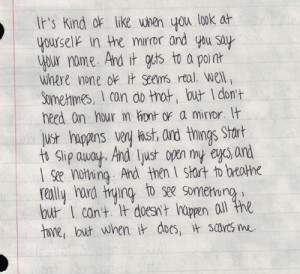 It's kind of like when you look at
yourself in the mirror and you say
your name. And it gets to a point
where none of it seems real. Well,
sometimes, I can do that, but I don't
need an hour in front of a mirror. It
just happens very fast, and things start
to slip away. And I just open my eyes, and
I see nothing. And then I start to breathe
really hard trying to see something,
but I can't. It doesn't happen all the
time, but when it does, it scares me.